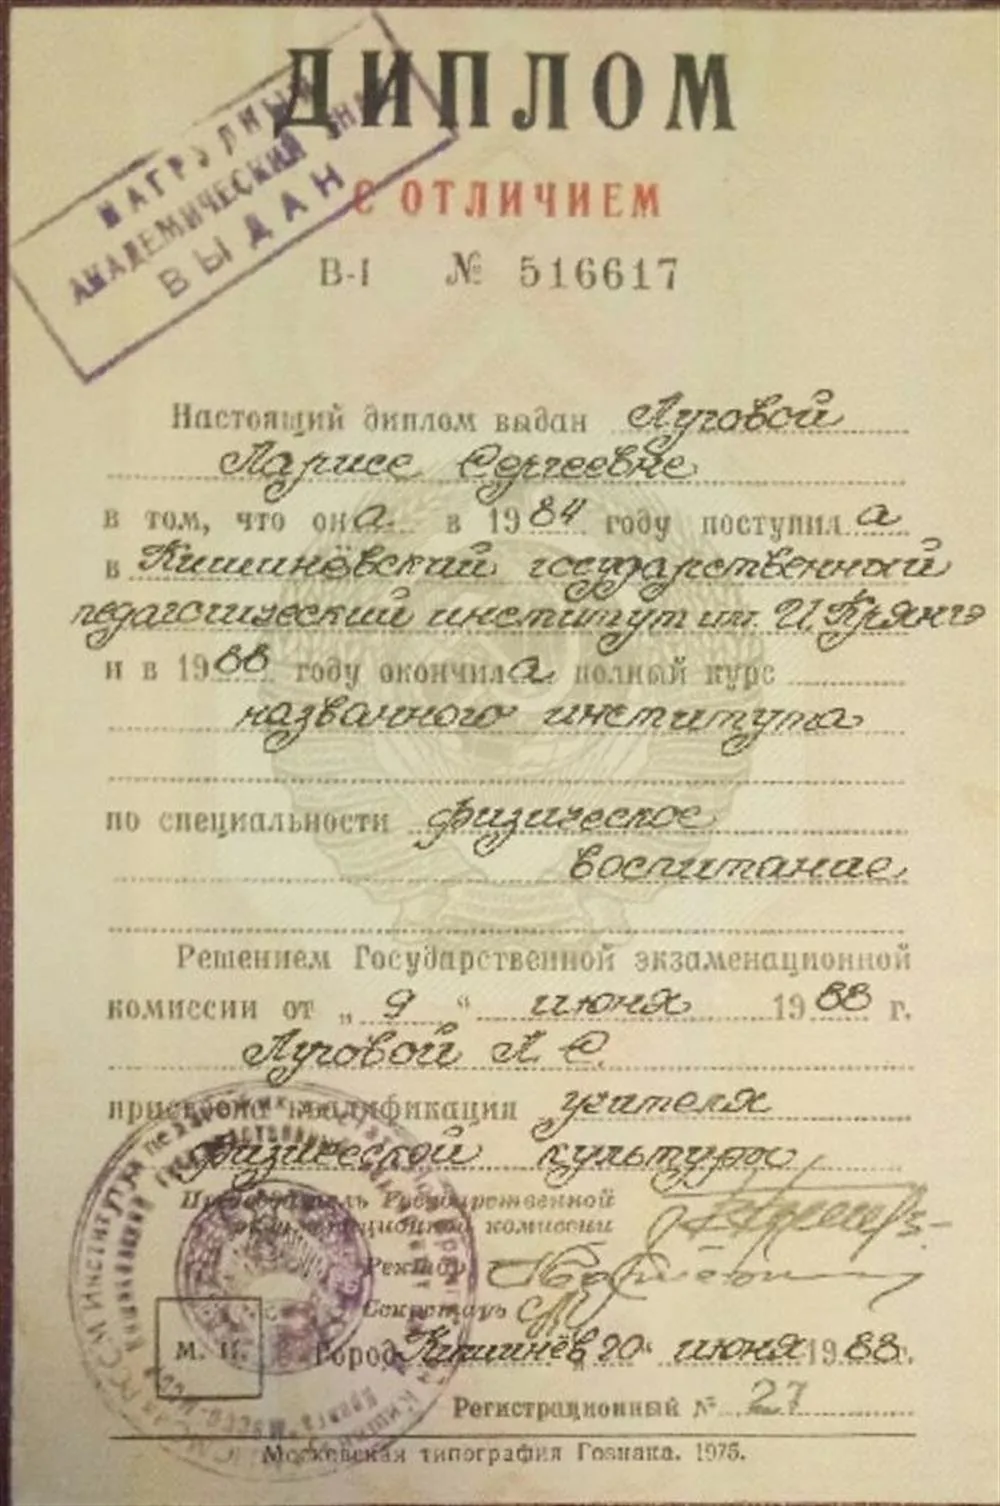 ДИПЛОМ
С ОТЛИЧИЕМ
В-I № 516617
НАГРУДНЫЙ
АКАДЕМИЧЕСКИЙ ЗНАК
ВЫДАН
Настоящий диплом выдан Луговой
Ларисе Сергеевне
в том, что она в 1984 году поступила
в Кишинёвский государственный
педагогический институт им. И. Крянгэ
и в 1988 году окончила полный курс
названного института
по специальности физическое
воспитание
Решением Государственной экзаменационной
комиссии от „9“ июня 1988 г.
Луговой Л. С.
присвоена квалификация учителя
физической культуры
Председатель Государственной
экзаменационной комиссии
Ректор
Секретарь
М. П. Город Кишинёв „20“ июня 1988 г.
Регистрационный № 27
Московская типография Гознака. 1975.